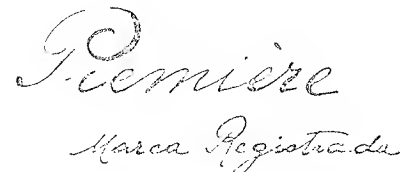 Première
Marca Registrada